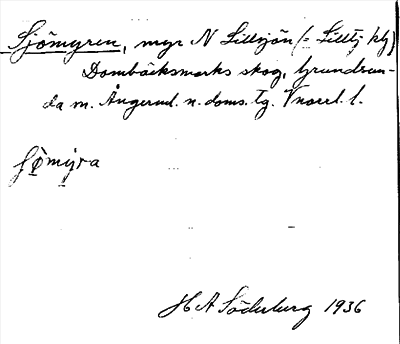 Sjömyren, myr N Lillsjön (= Lilltj kbl)
Dombäcksmarks skog, Grundsun-
da sn. Ångerml. n. doms. tg. Vnorrl. l.
sjö̀mýra
H A Söderberg 1936